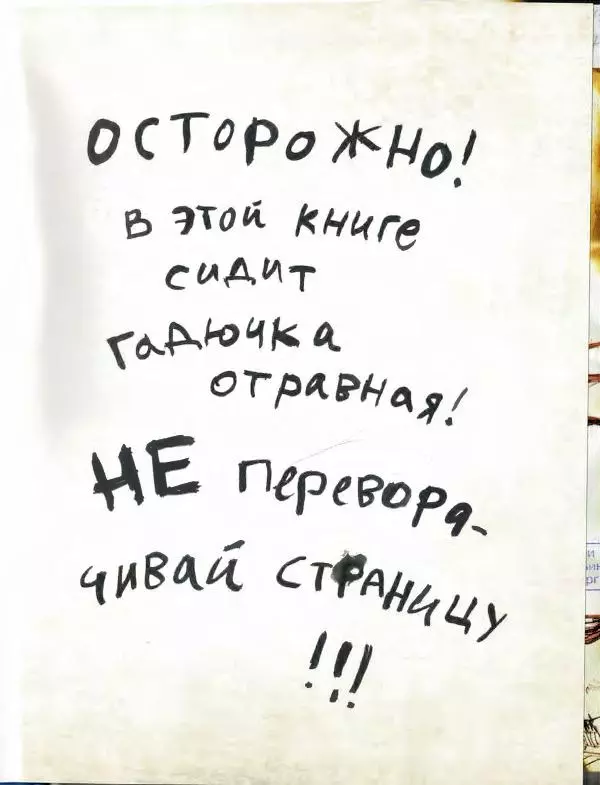 ОСТОРОЖНО!
В ЭТОЙ КНИГЕ
СИДИТ
ГАДЮЧКА
ОТРАВНАЯ!
НЕ ПЕРЕВОРА-
ЧИВАЙ СТРАНИЦУ
!!!